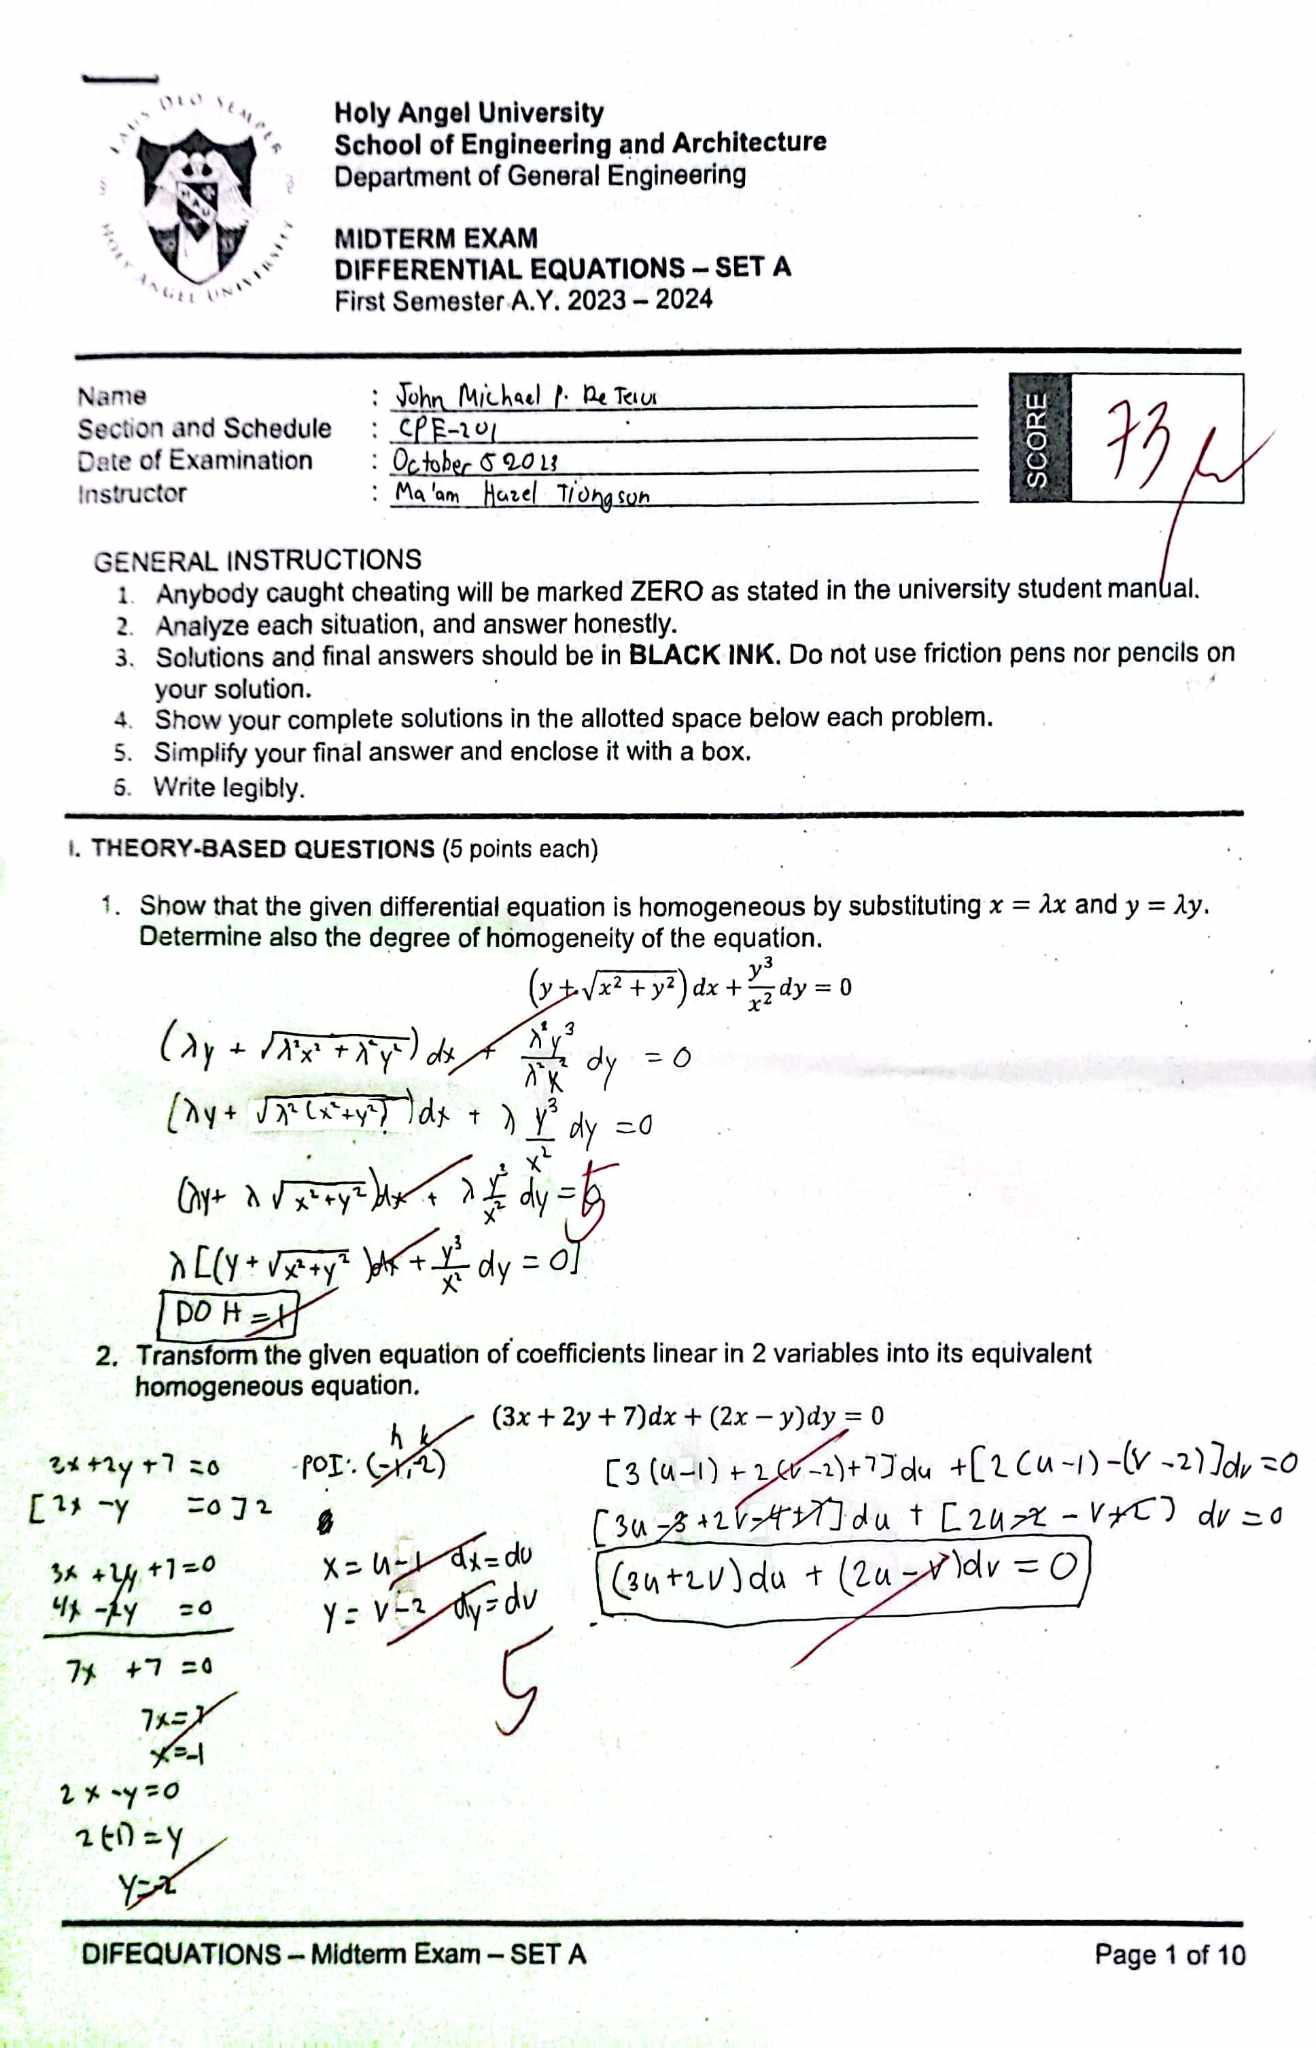 LAUS DEO SEMPER
HAU
HOLY ANGEL UNIVERSITY
Holy Angel University
School of Engineering and Architecture
Department of General Engineering
MIDTERM EXAM
DIFFERENTIAL EQUATIONS – SET A
First Semester A.Y. 2023 – 2024
Name : John Michael P. De
Section and Schedule : CPE-201
Date of Examination : October 5 2023
Instructor : Ma'am Hazel Tiongson
SCORE 73
GENERAL INSTRUCTIONS
1. Anybody caught cheating will be marked ZERO as stated in the university student manual.
2. Analyze each situation, and answer honestly.
3. Solutions and final answers should be in BLACK INK. Do not use friction pens nor pencils on
your solution.
4. Show your complete solutions in the allotted space below each problem.
5. Simplify your final answer and enclose it with a box.
6. Write legibly.
I. THEORY-BASED QUESTIONS (5 points each)
1. Show that the given differential equation is homogeneous by substituting x = λx and y = λy.
Determine also the degree of homogeneity of the equation.
(y + √x² + y²) dx + y³/x² dy = 0
(λy + √λ²x² + λ²y²) dx + λ³y³/λ²x² dy = 0
(λy + √λ²(x²+y²)) dx + λ y³/x² dy = 0
(λy + λ √x²+y²) dx + λ y³/x² dy = 0
5
λ[(y + √x²+y²) dx + y³/x² dy = 0]
DOH = 1
2. Transform the given equation of coefficients linear in 2 variables into its equivalent
homogeneous equation.
(3x + 2y + 7)dx + (2x − y)dy = 0
3x +2y +7 =0
[2x -y =0]2
3x +2y +7=0
4x -2y =0
7x +7 =0
7x=7
x=-1
2x -y=0
2(-1) =y
y=-2
h k
POI: (-1,-2)
x= u-1 dx=du
y= v-2 dy=dv
5
[3(u-1) + 2(v-2)+7]du +[2(u-1)-(v-2)]dv=0
[3u-3+2v-4+7]du + [2u-2-v+2] dv=0
(3u+2v)du + (2u-v)dv = 0
DIFEQUATIONS – Midterm Exam – SET A
Page 1 of 10